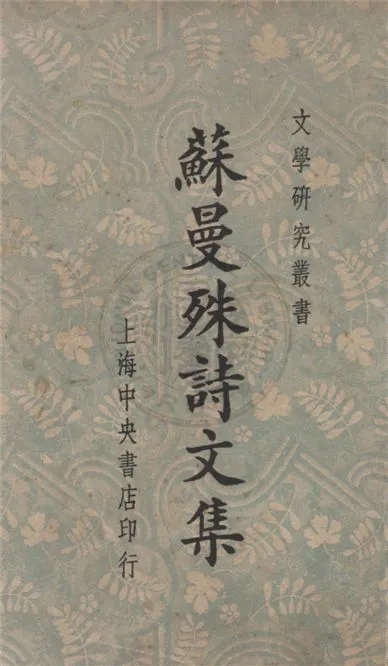 文學研究叢書
蘇曼殊詩文集
上海中央書店印行